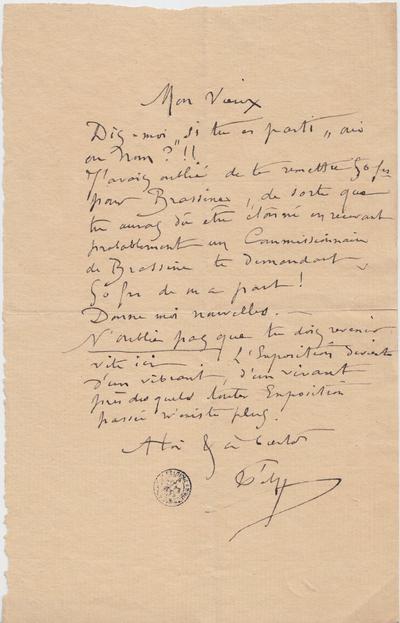 Mon Vieux
Dis-moi "si tu es parti", oui
ou Non?"!!
J'avais oublié de te remettre 60 frs
pour Brassine, de sorte que
tu auras dû être étonné en recevant
probablement un Commissionnaire
de Brassine te demandant
60 frs de ma part!
Donne moi nouvelles.
N'oublie pas que tu dois revenir
vite ici L'Exposition devient
d'un vibrant, d'un vivant
près desquels toute Exposition
passée n'existe plus.
A toi & à bientôt